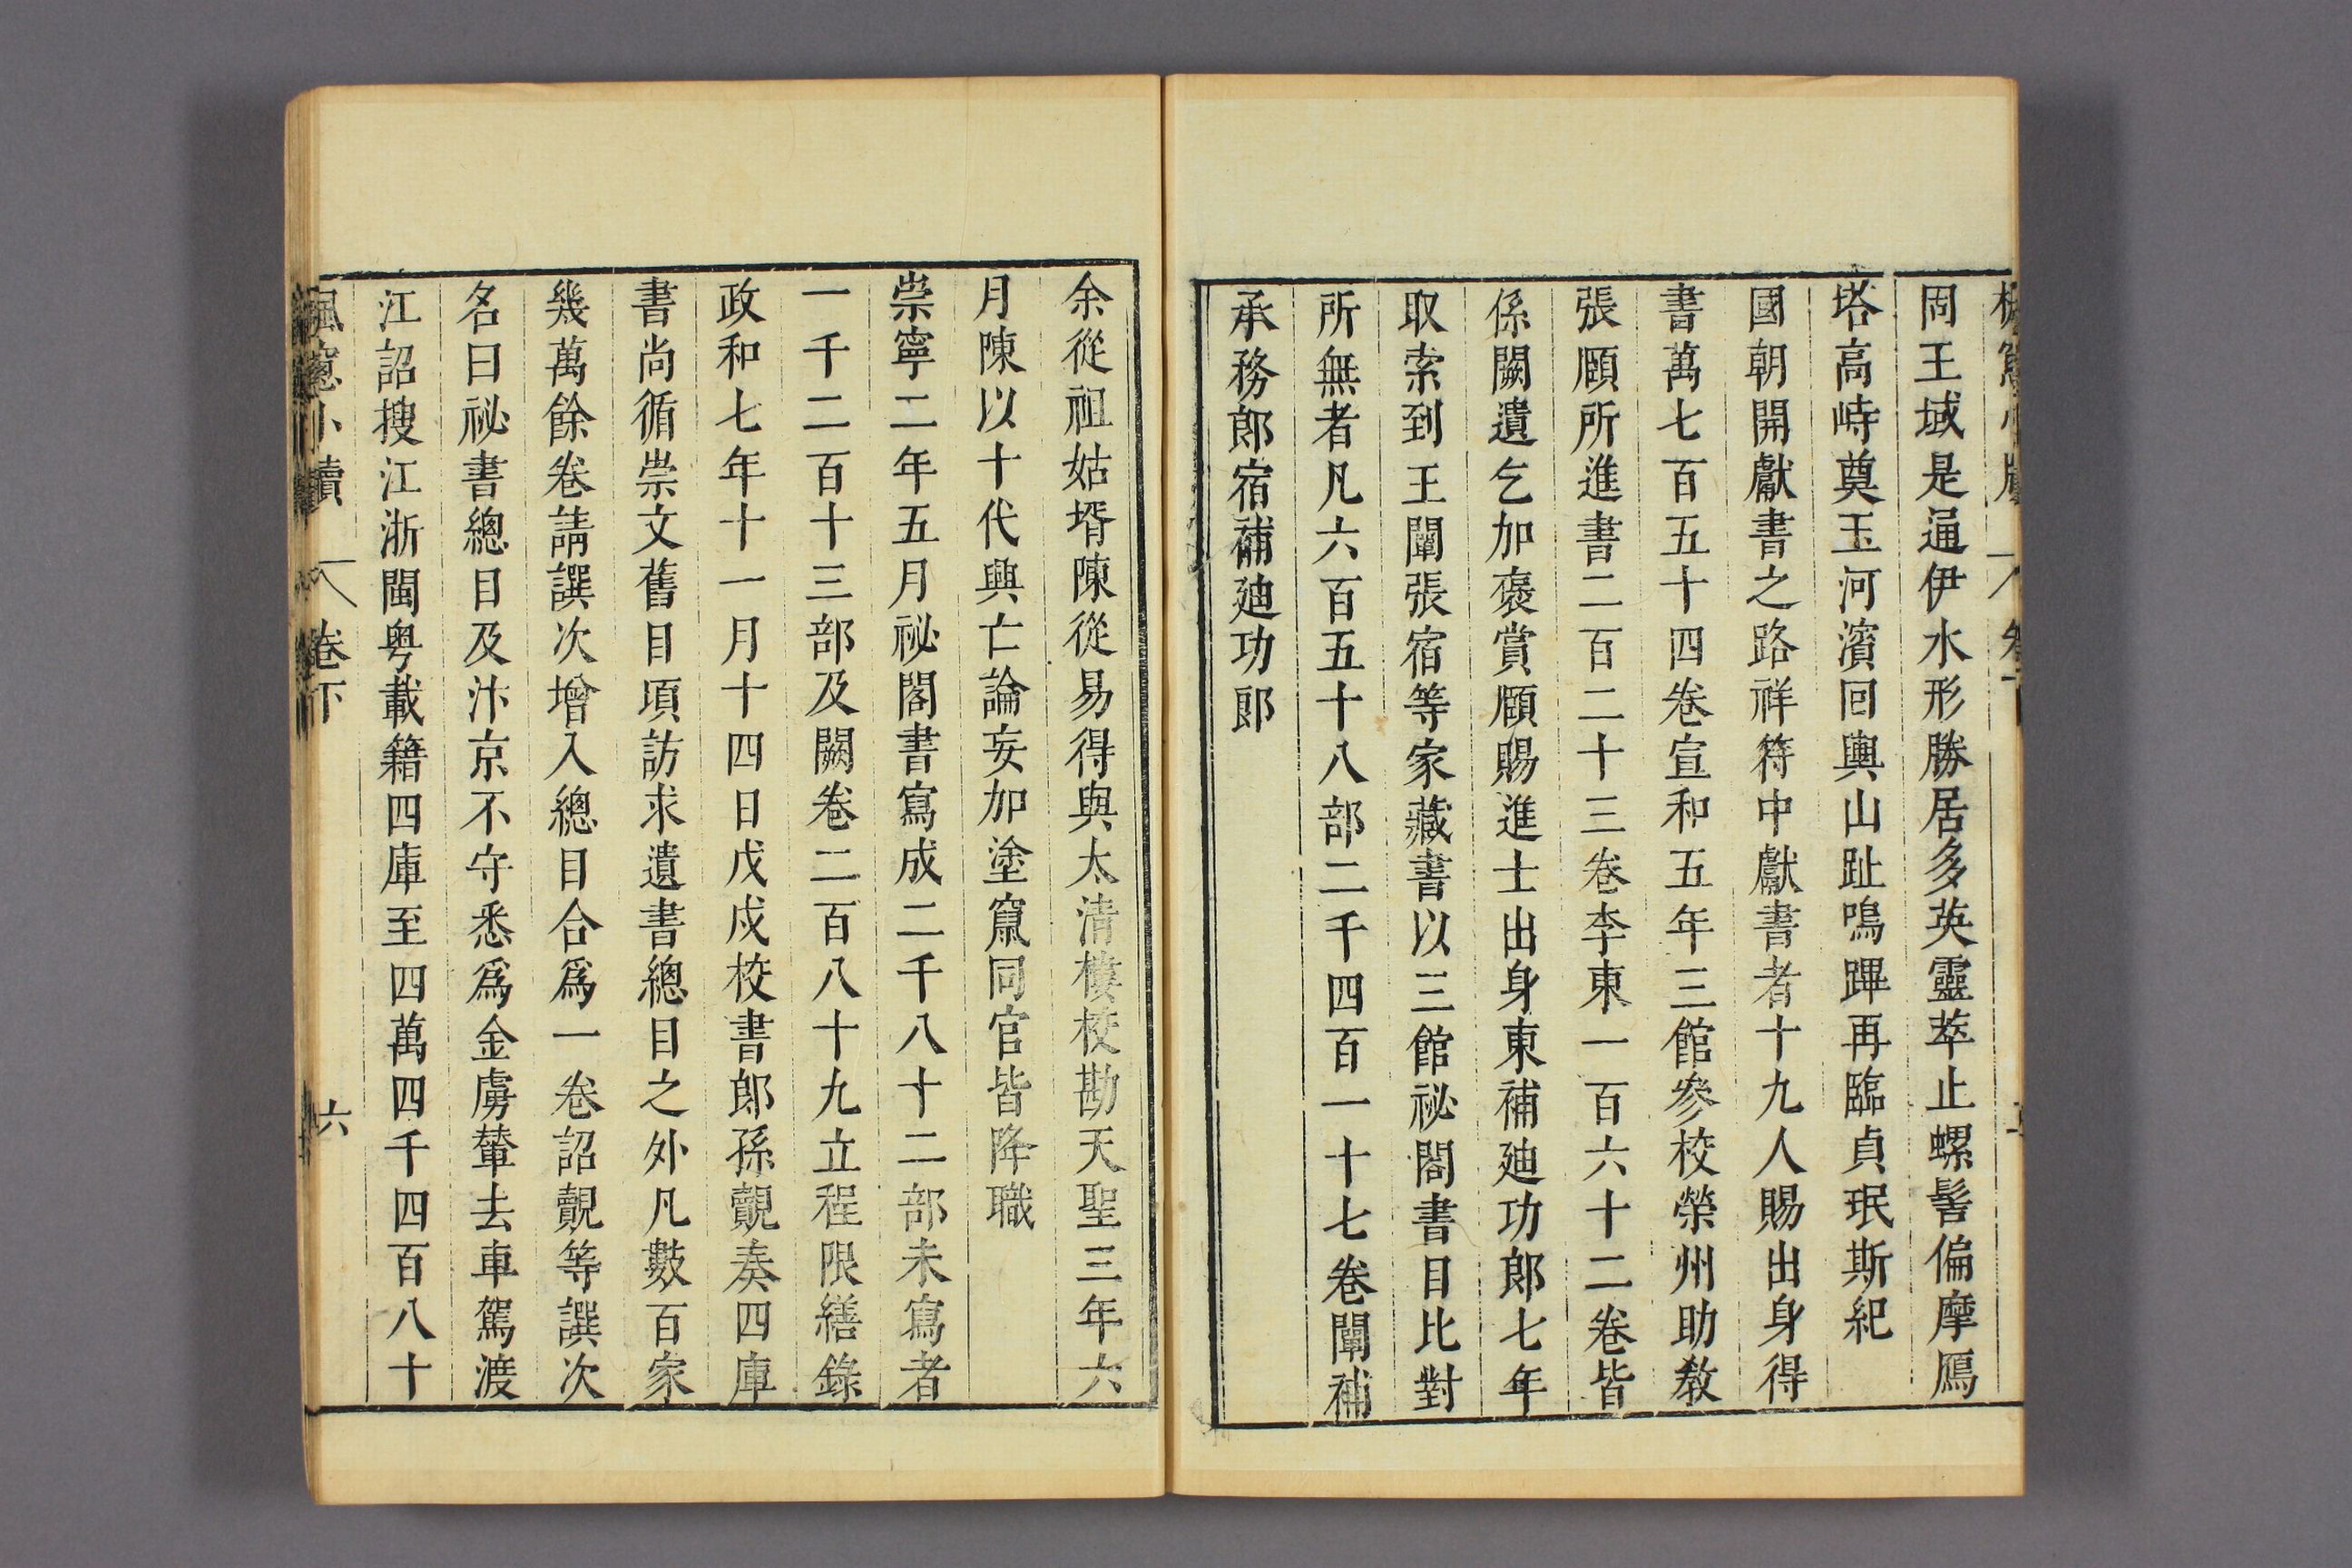 周王域是逼伊水形勝居多英靈萃止螺髻偏摩鴈
塔高峙奠玉河濱回輿山趾鳴蹕再臨貞珉斯紀
國朝開獻書之路祥符中獻書者十九人賜出身得
書萬七百五十四卷宣和五年三館參校榮州助教
張頤所進書二百二十三卷李東一百六十二卷皆
係闕遺乞加褒賞頤賜進士出身東補廸功郎七年
取索到王闡張宿等家藏書以三館祕閣書目比對
所無者凡六百五十八部二千四百一十七卷闡補
承務郎宿補廸功郎
余從祖姑壻陳從易得與太清樓校勘天聖三年六
月陳以十代興亡論妄加塗竄同官皆降職
崇寧二年五月祕閣書寫成二千八十二部未寫者
一千二百十三部及闕卷二百八十九立程限繕錄
政和七年十一月十四日戊戌校書郎孫覿奏四庫
書尚循崇文舊目頃訪求遺書總目之外凡數百家
幾萬餘卷請譔次增入總目合爲一卷詔覿等譔次
名曰祕書總目及汴京不守悉爲金虜輦去車駕渡
江詔搜江浙閩粤載籍四庫至四萬四千四百八十
楓窻小牘 卷下 六